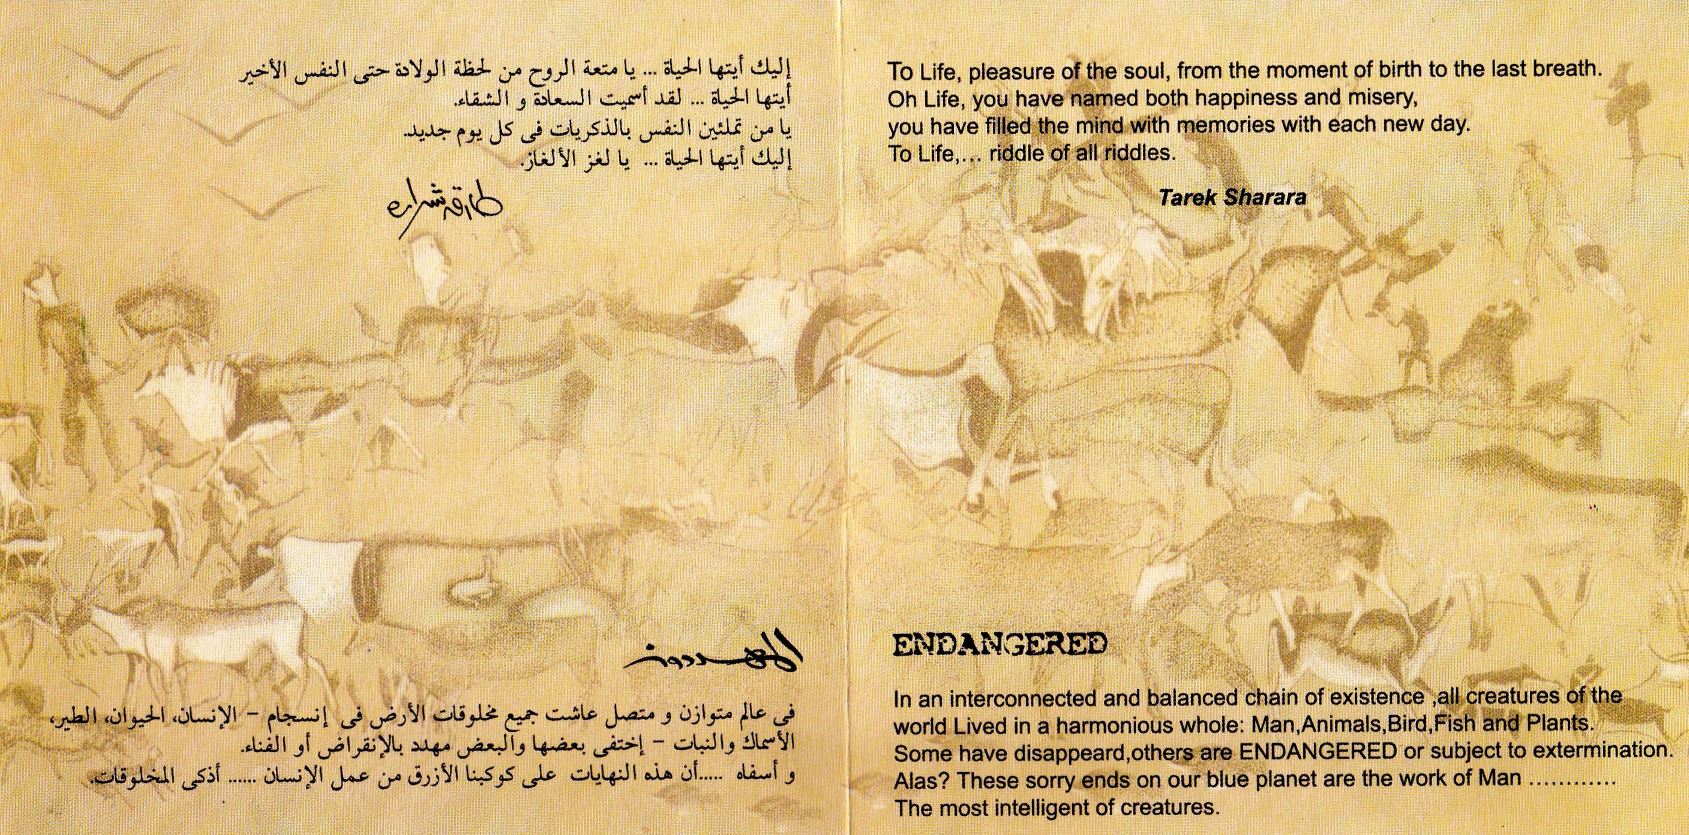 إليك أيتها الحياة ... يا متعة الروح من لحظة الولادة حتى النفس الأخير
أيتها الحياة ... لقد أسميت السعادة و الشقاء.
يا من تملئين النفس بالذكريات فى كل يوم جديد.
إليك أيتها الحياة ... يا لغز الألغاز.
طارق شرارة
To Life, pleasure of the soul, from the moment of birth to the last breath.
Oh Life, you have named both happiness and misery,
you have filled the mind with memories with each new day.
To Life,... riddle of all riddles.
Tarek Sharara
المهددون
فى عالم متوازن و متصل عاشت جميع مخلوقات الأرض فى إنسجام - الإنسان، الحيوان، الطير،
الأسماك والنبات - إختفى بعضها والبعض مهدد بالإنقراض أو الفناء.
و أسفاه .....أن هذه النهايات على كوكبنا الأزرق من عمل الإنسان ...... أذكى المخلوقات.
ENDANGERED
In an interconnected and balanced chain of existence ,all creatures of the
world Lived in a harmonious whole: Man,Animals,Bird,Fish and Plants.
Some have disappeard,others are ENDANGERED or subject to extermination.
Alas? These sorry ends on our blue planet are the work of Man ............
The most intelligent of creatures.